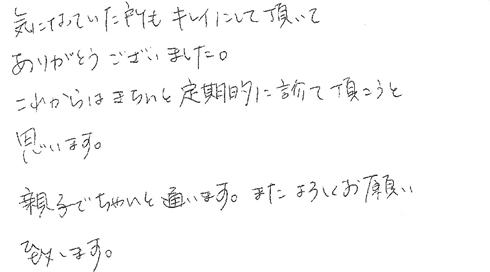 気になっていた所も キレイにして頂いて
ありがとうございました。
これからはきちんと定期的に診て頂こうと
思います。
親子でちゃんと通います。またよろしくお願い
致します。